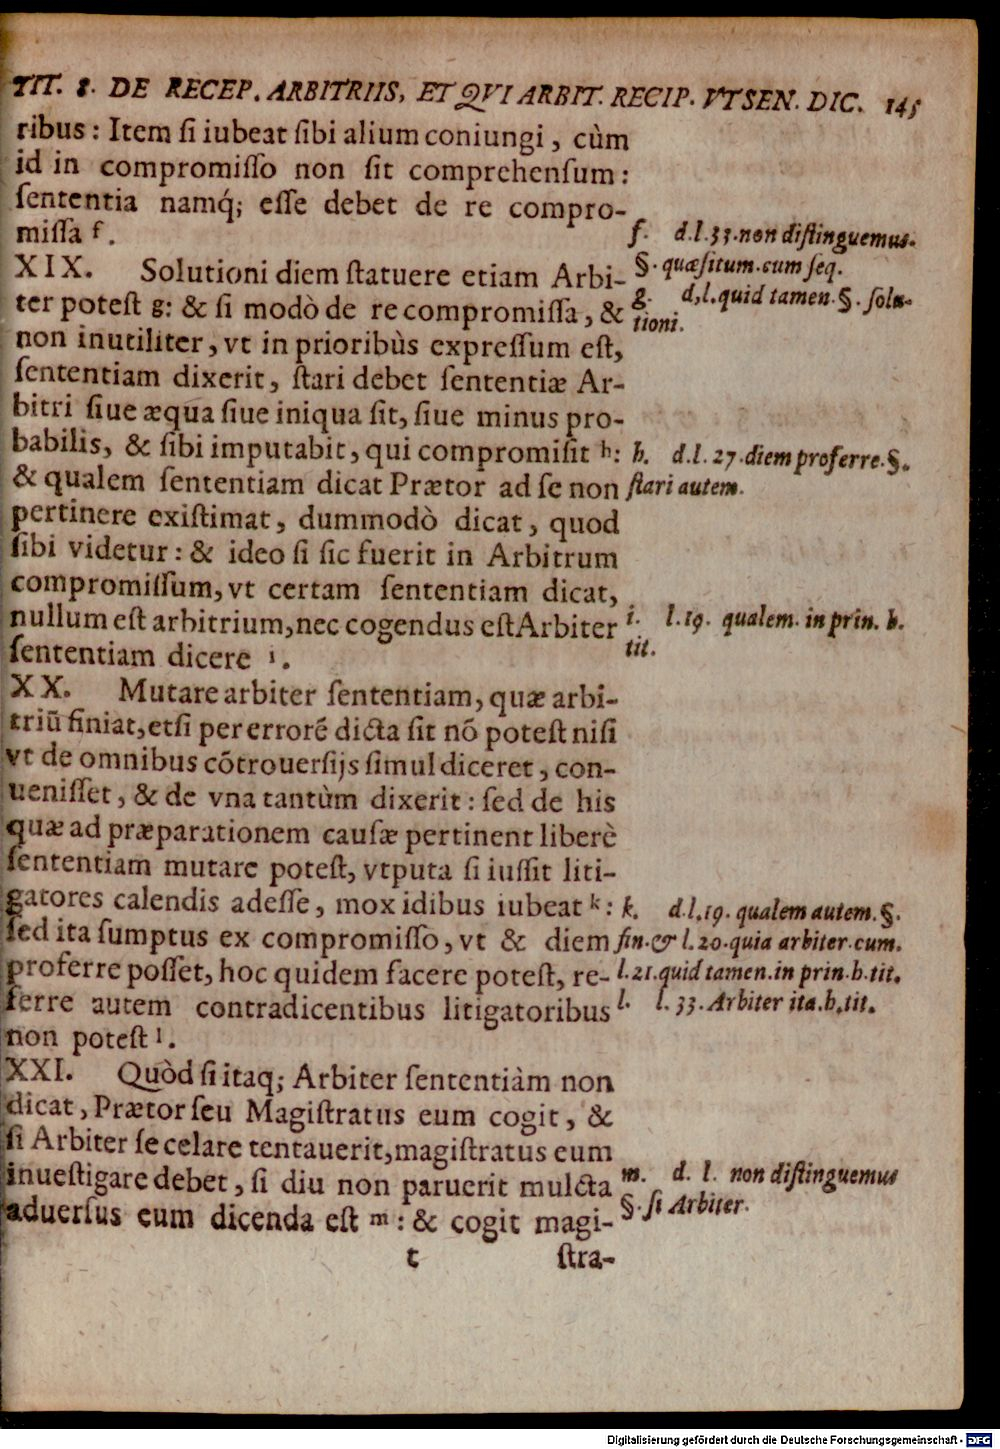 TIT. 8. DE RECEP. ARBITRIIS, ET QVI ARBIT. RECIP. VT SEN. DIC. 145
ribus: Item ſi iubeat ſibi alium coniungi, cùm
id in compromiſſo non ſit comprehenſum:
ſententia namq́; eſſe debet de re compro-
miſſa f.
XIX. Solutioni diem ſtatuere etiam Arbi-
ter poteſt g: & ſi modò de re compromiſſa, &
non inutiliter, vt in prioribùs expreſſum eſt,
ſententiam dixerit, ſtari debet ſententiæ Ar-
bitri ſiue æqua ſiue iniqua ſit, ſiue minus pro-
babilis, & ſibi imputabit, qui compromiſit h:
& qualem ſententiam dicat Prætor ad ſe non
pertinere exiſtimat, dummodò dicat, quod
ſibi videtur: & ideo ſi ſic fuerit in Arbitrum
compromiſſum, vt certam ſententiam dicat,
nullum eſt arbitrium, nec cogendus eſt Arbiter
ſententiam dicere i.
XX. Mutare arbiter ſententiam, quæ arbi-
triũ finiat, etſi per errorẽ dicta ſit nõ poteſt niſi
vt de omnibus cõtrouerſijs ſimul diceret, con-
ueniſſet, & de vna tantùm dixerit: ſed de his
quæ ad præparationem cauſæ pertinent liberè
ſententiam mutare poteſt, vtputa ſi iuſſit liti-
gatores calendis adeſſe, mox idibus iubeat k:
ſed ita ſumptus ex compromiſſo, vt & diem
proferre poſſet, hoc quidem facere poteſt, re-
ferre autem contradicentibus litigatoribus
non poteſt l.
XXI. Quòd ſi itaq; Arbiter ſententiàm non
dicat, Prætor ſeu Magiſtratus eum cogit, &
ſi Arbiter ſe celare tentauerit, magiſtratus eum
inueſtigare debet, ſi diu non paruerit mulcta
aduerſus eum dicenda eſt m: & cogit magi-
t ſtra-
f. d. l. 33. non diſtinguemus.
§. quæſitum. cum ſeq.
g. d. l. quid tamen. §. ſolu-
tioni.
h. d. l. 27. diem proferre. §.
ſtari autem.
i. l. 19. qualem. in prin. h.
tit.
k. d. l. 19. qualem autem. §.
fin. & l. 20. quia arbiter. cum.
l. 21. quid tamen. in prin. h. tit.
l. l. 33. Arbiter ita. h. tit.
m. d. l. non diſtinguemus
§. ſi Arbiter.
Digitalisierung gefördert durch die Deutsche Forschungsgemeinschaft - DFG